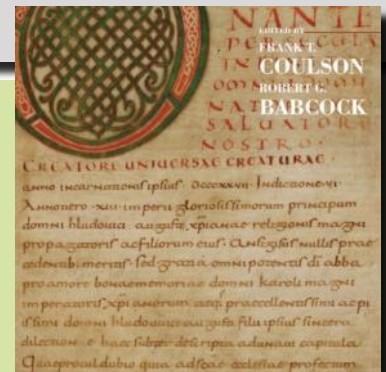 NANTE
EDITED BY
FRANK T.
COULSON
ROBERT G.
BABCOCK
NOSTRO·
CREATORE UNIUERSAE CREATURAE·
anno incarnationis ipsius dcccxxvii· Indictione vi·
Anno uero xiii· imperii gloriosissimorum principum
domni hludouuici augusti xpianae religionis magni
propagatoris ac filiorum eius· Ansegisus nullis prae
cedentib meritis· sed gratia omnipotentis di abba
pro amore bonae memoriae domni karoli magni
imperatoris xpianorum atq praecellentissimi ac pi
issimi domni hludouuici augusti filii ipsius sincera
dilectione haec subter descripta adunaui capitula
Quae procul dubio quia ad scae ecclesiae profectum